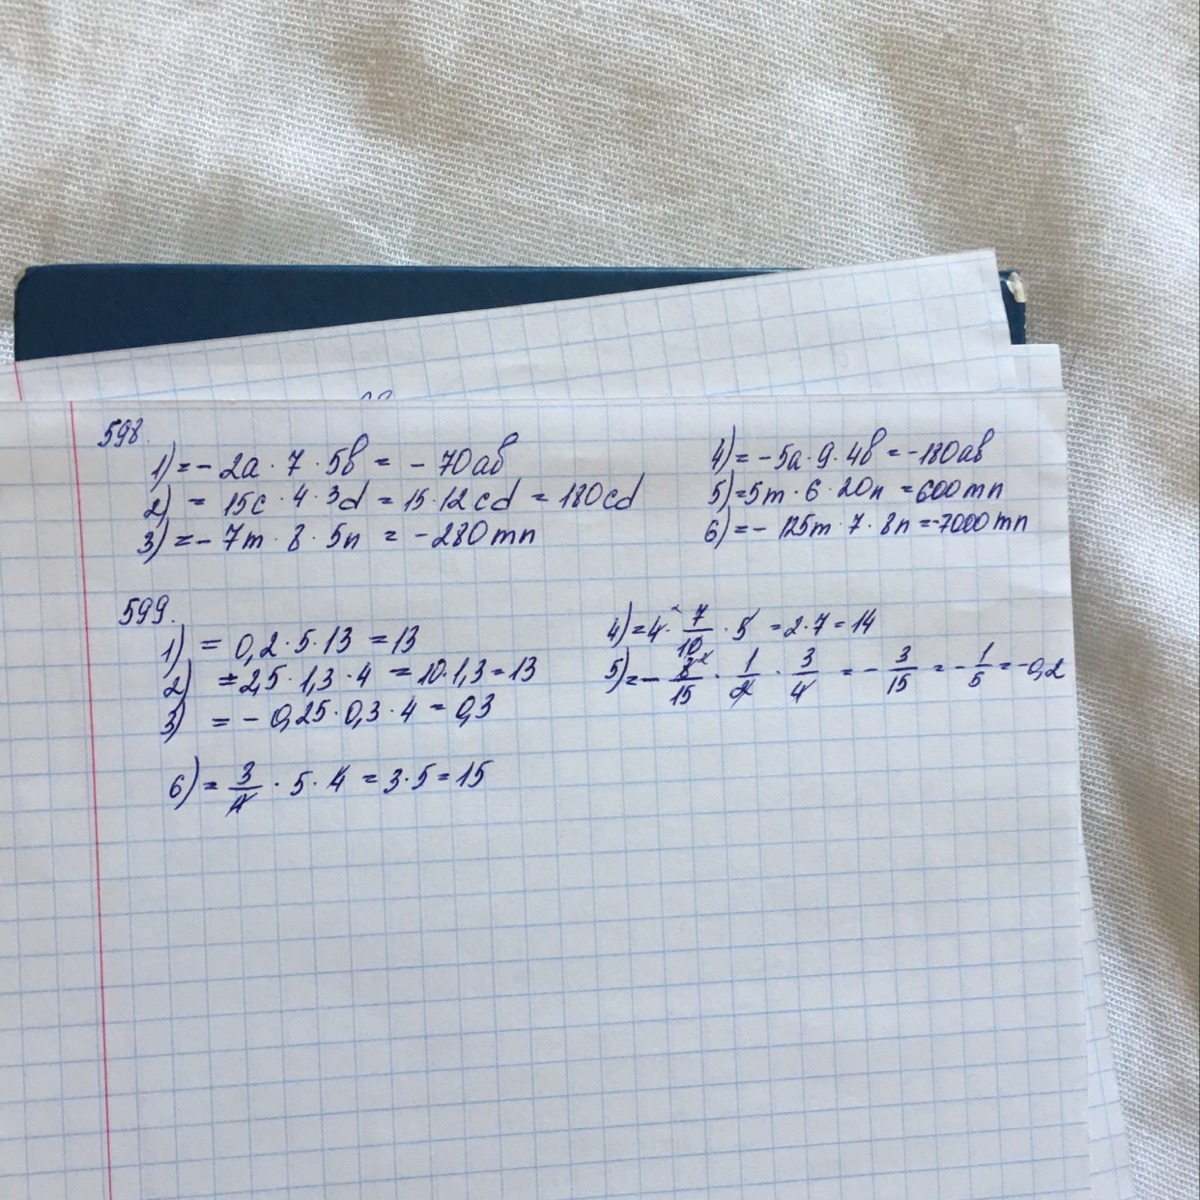 598.
1) = - 2a · 7 · 5b = - 70ab
2) = 15c · 4 · 3d = 15 · 12cd = 180cd
3) = - 7m · 8 · 5n = - 280mn
4) = - 5a · 9 · 4b = - 180ab
5) = 5m · 6 · 20n = 600mn
6) = - 125m · 7 · 8n = -7000mn
599.
1) = 0,2 · 5 · 13 = 13
2) = 2,5 · 1,3 · 4 = 10 · 1,3 = 13
3) = - 0,25 · 0,3 · 4 = 0,3
4) = 4 · 7/10 · 5 = 2 · 7 = 14
5) = - 8/15 · 1/2 · 3/4 = - 3/15 = - 1/5 = -0,2
6) = 3/4 · 5 · 4 = 3 · 5 = 15